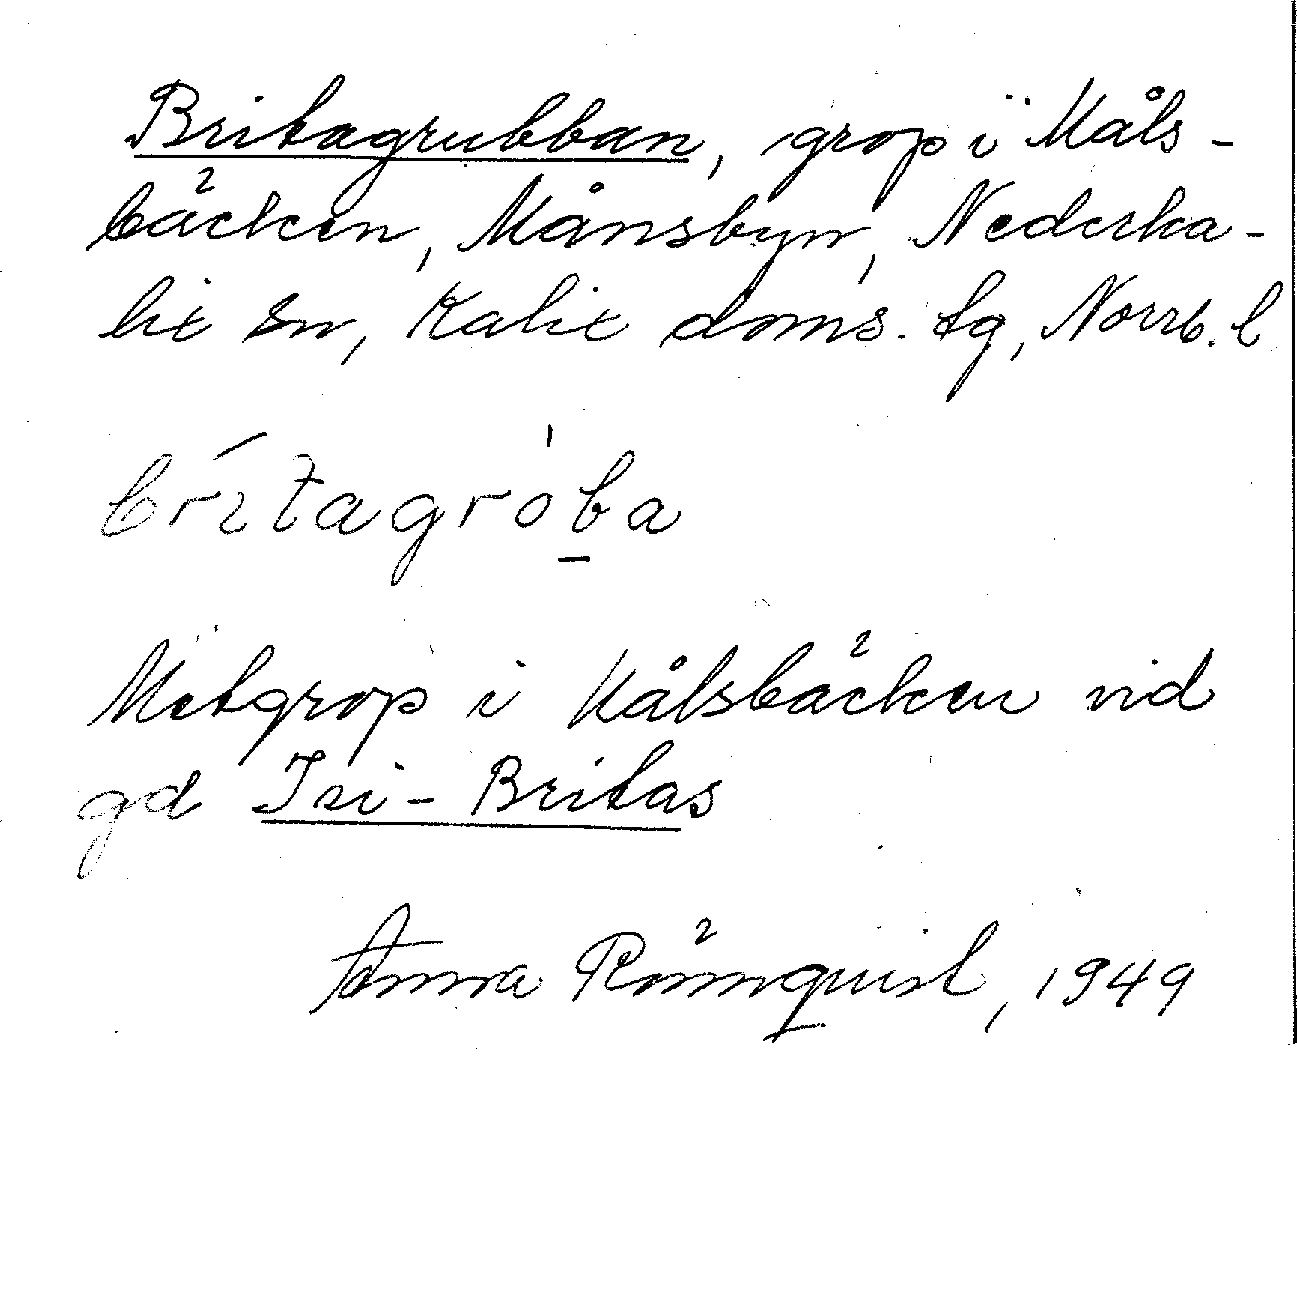 Britagrubban, grop i Kåls-
bäcken, Månsbyn, Nederka-
lix sn, Kalix doms. tg, Norrb. l
brítagróba
Metgrop i Kålsbäcken vid
gd Isi-Britas
Anna Rönnquist, 1949